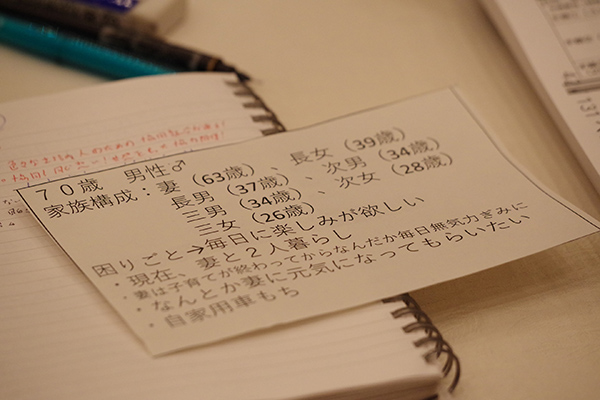 ７０歳　男性♂
家族構成：妻（63歳）、長女（39歳）
長男（37歳）、次男（34歳）
三男（34歳）、次女（28歳）
三女（26歳）
困りごと→毎日に楽しみが欲しい
・現在、妻と２人暮らし
・妻は子育てが終わってからなんだか毎日無気力ぎみに
・なんとか妻に元気になってもらいたい
・自家用車もち